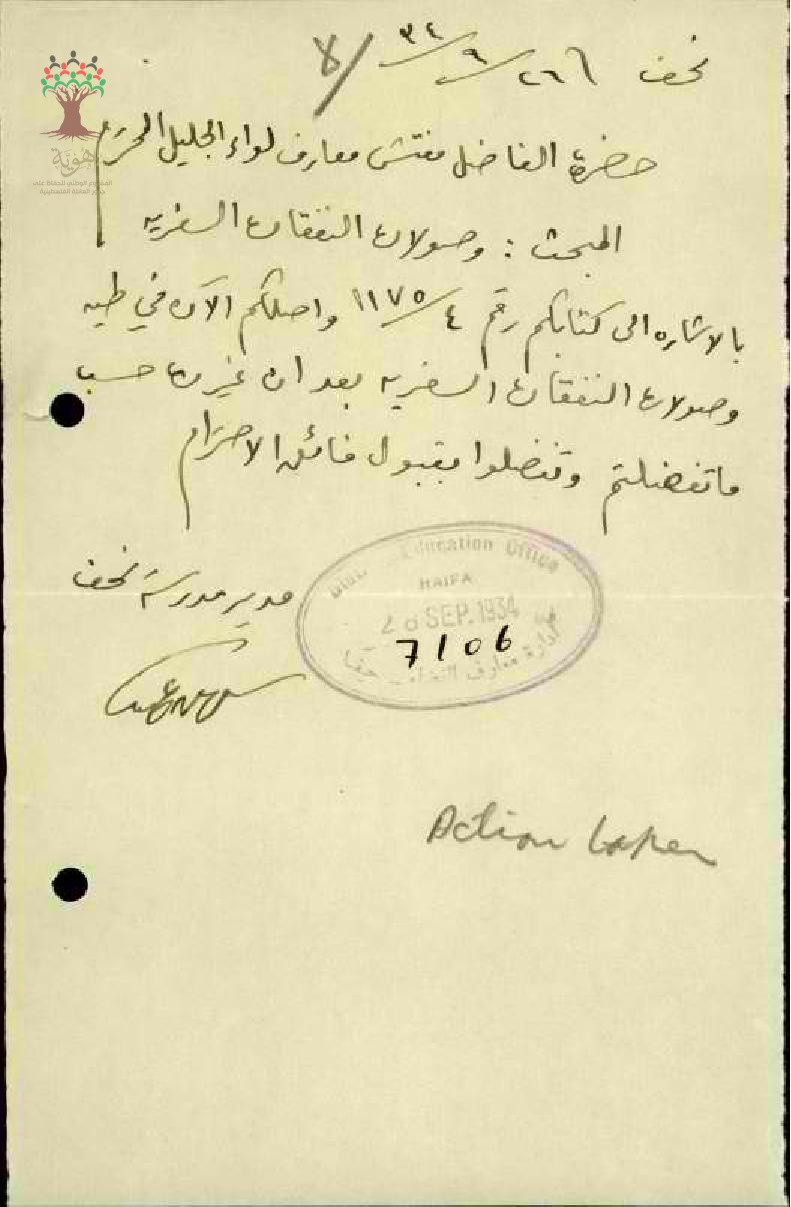 نحف ٢٦/٩/٣٤
حضرة الفاضل مفتش معارف لواء الجليل المحترم
المبحث : وصولات النفقات السفريه
بالاشاره الى كتابكم رقم ١١٧٥/٤ واصلكم الآن في طيه
وصولات النفقات السفريه بعد ان غيرت حسب
ما تفضلتم وتفضلوا بقبول فائق الاحترام
مدير مدرسة نحف
Education Office
HAIFA
SEP. 1934
7106
ادارة معارف
Action taken
هوية